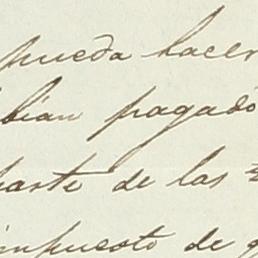 pueda hacer
bian pagado
parte de las
impuesto de